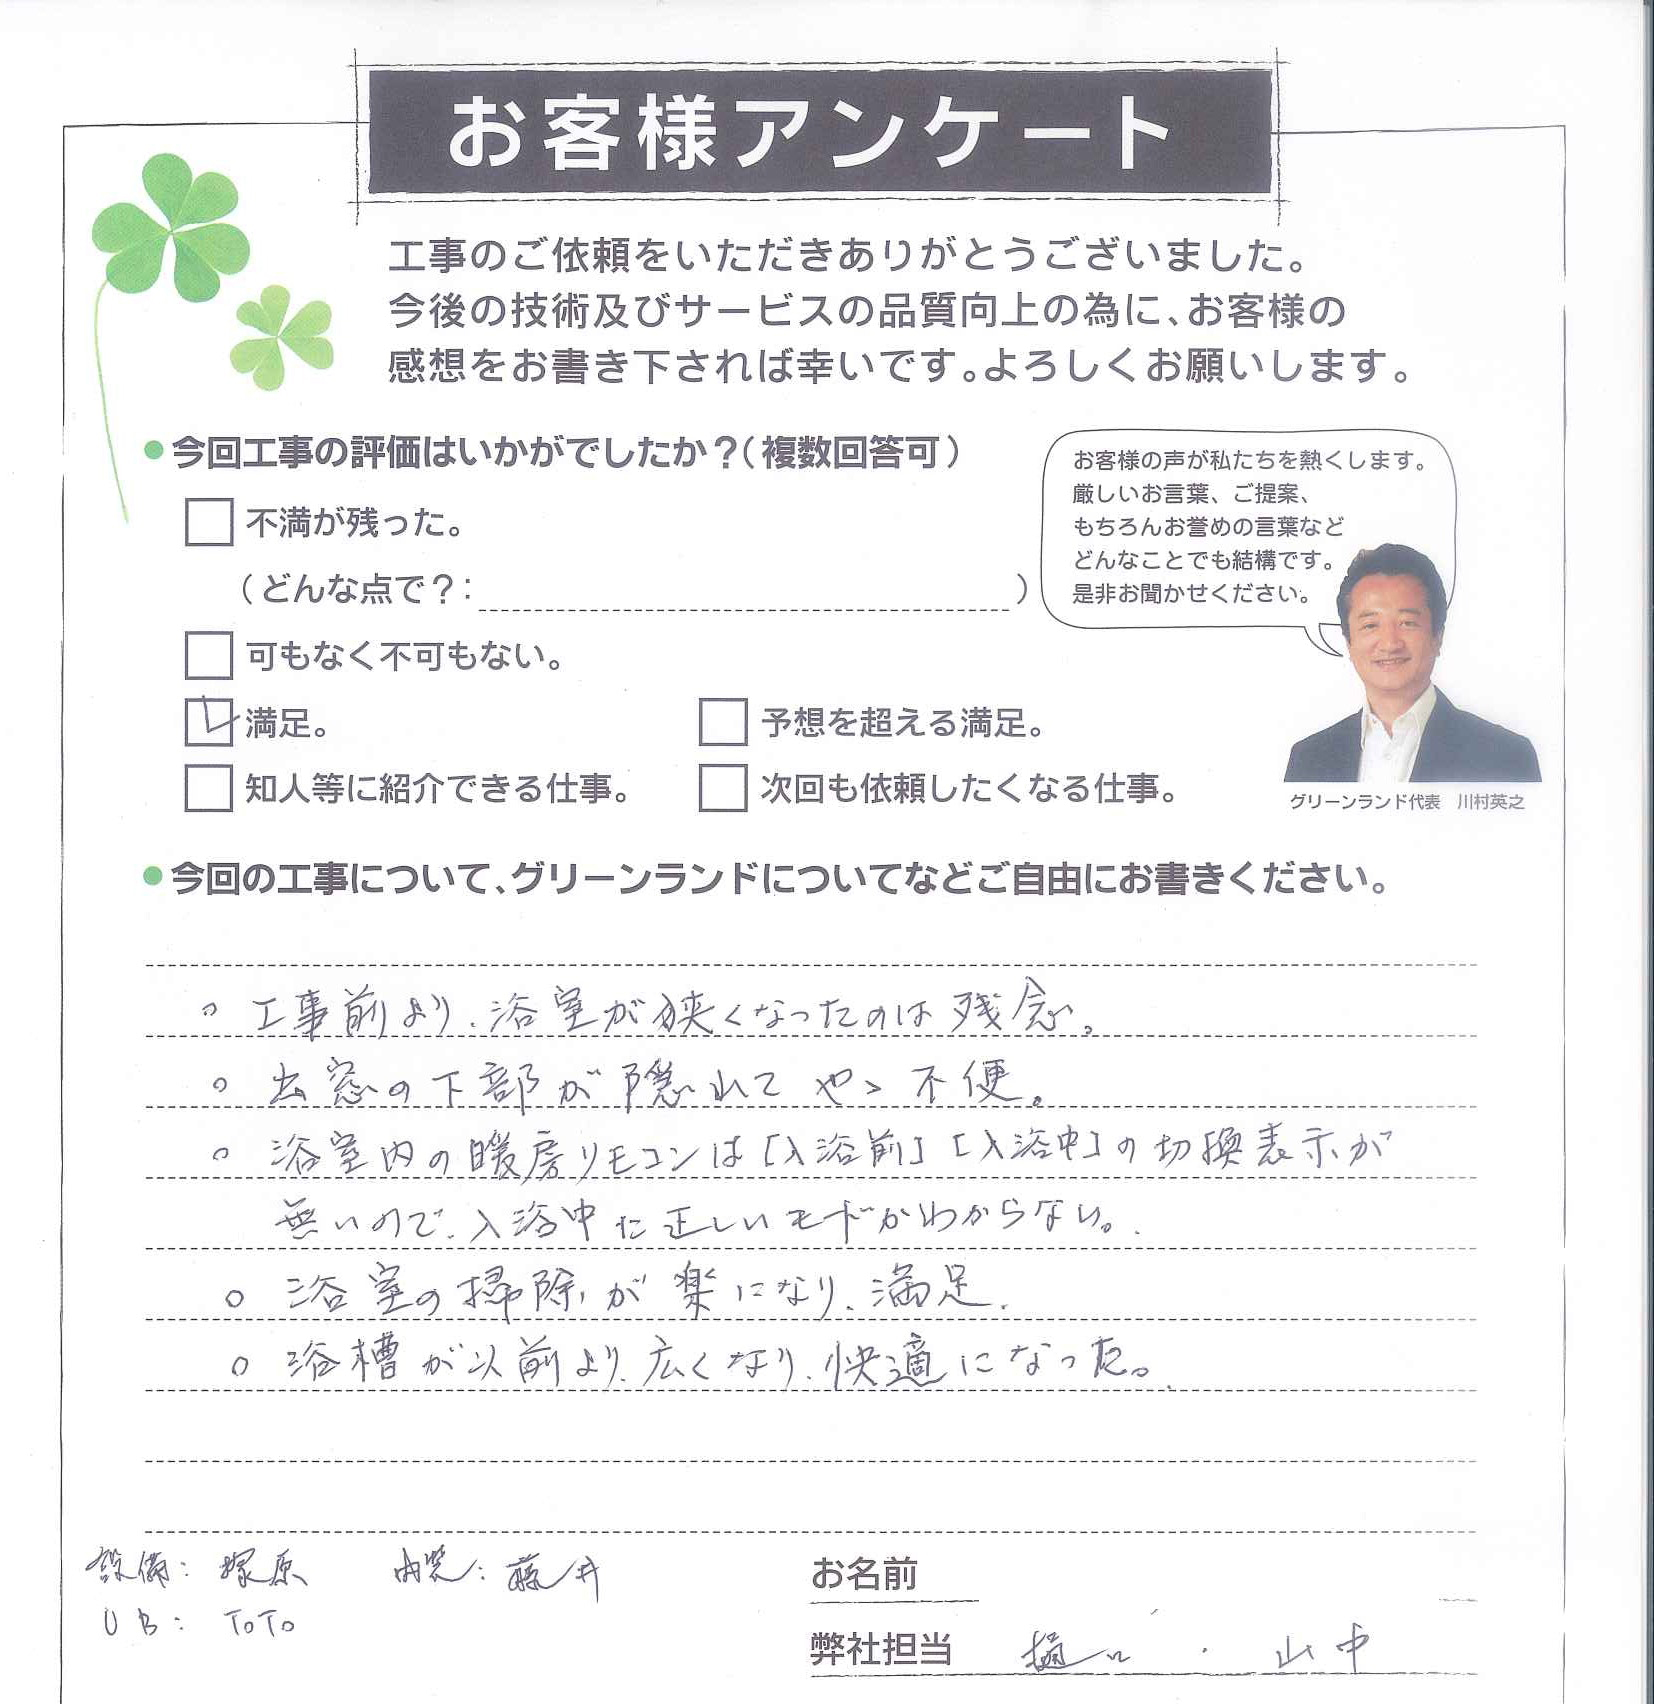 お客様アンケート
工事のご依頼をいただきありがとうございました。
今後の技術及びサービスの品質向上の為に、お客様の
感想をお書き下されば幸いです。よろしくお願いします。
今回工事の評価はいかがでしたか？（複数回答可）
不満が残った。
（どんな点で？：）
可もなく不可もない。
満足。
予想を超える満足。
知人等に紹介できる仕事。
次回も依頼したくなる仕事。
お客様の声が私たちを熱くします。
厳しいお言葉、ご提案、
もちろんお誉めの言葉など
どんなことでも結構です。
是非お聞かせください。
グリーンランド代表 川村英之
今回の工事について、グリーンランドについてなどご自由にお書きください。
○ 工事前より、浴室が狭くなったのは残念。
○ 出窓の下部が隠れてやゝ不便。
○ 浴室内の暖房リモコンは「入浴前」「入浴中」の切換表示が
無いので、入浴中に正しいモードかわからない。
○ 浴室の掃除が楽になり、満足.
○ 浴槽が以前より、広くなり、快適になった。
設備： 塚原 内装： 藤井
UB： TOTO
お名前
弊社担当 樋口 ・ 山中